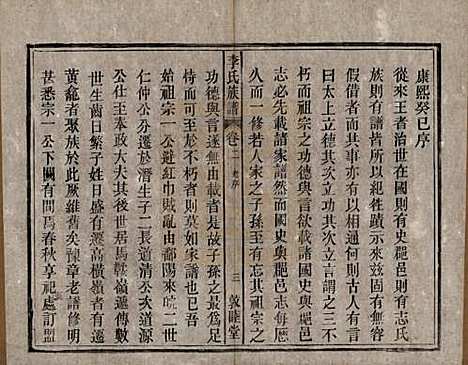 康熙癸巳序
從來王者治世在國則有史郡邑則有志氏
族則有譜皆所以紀生存歿
假借言者有以相通何則古人有言
曰太上立德其次立功其次立言謂之三不
朽而祖宗之功德與言欲載諸國史與郡邑
志必先載諸家譜然而國史與郡邑志每歷
久而一修若人家之子孫至有忘其祖宗之
功德與言遂無由載者是故子孫之最為足
恃而可至於不朽者莫如家譜也已吾
始祖宗一公避紅巾賊亂由鄱陽來皖二世
仁仲公從潛生子二長道清公次道源
公仕政大夫其次世居馬鞍嶺遞傳十數
世生齒日繁子姓日盛有遷高橫嶺者有遷
黃龕者聚族於厥維舊矣豫章老譜修明
甚悉宗一公下關有間焉春秋享祀處訂盟
李氏族譜
卷一
老序
三
敦睦堂